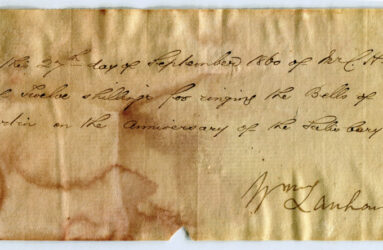 the 27th day of September 1860 of Mr C. H
Twelve shillings for ringing the Bells of
on the Anniversary of the
Wm
Lanham